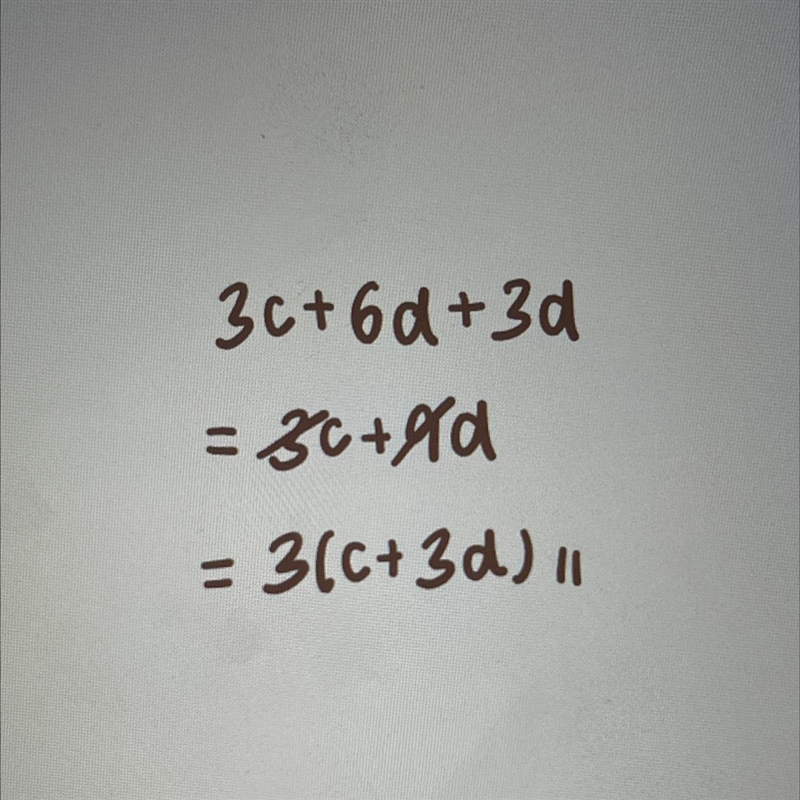 3c+6d+3d
= 3c+9d
= 3(c+3d) //